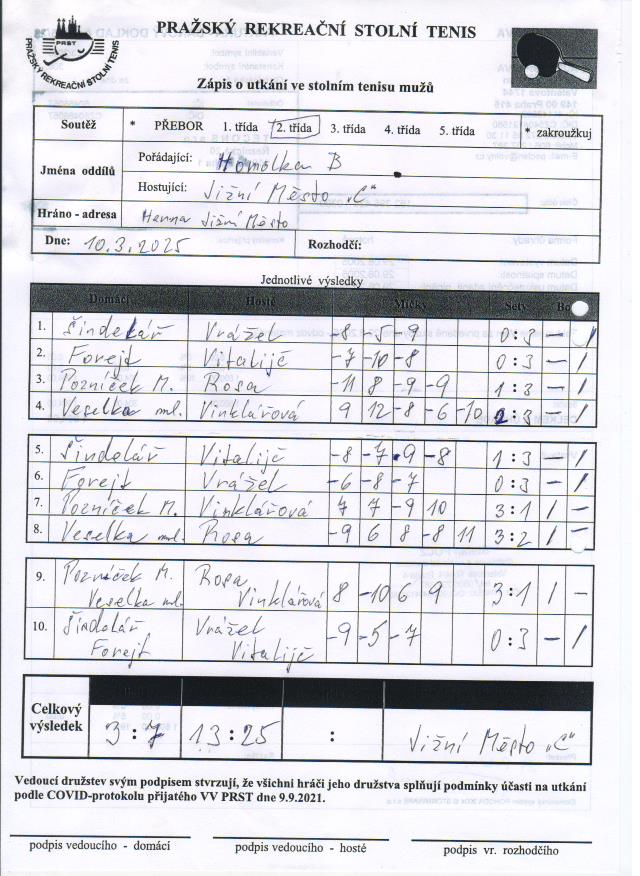 PRAŽSKÝ REKREAČNÍ STOLNÍ TENIS
PRST
PRAŽSKÝ REKREAČNÍ STOLNÍ TENIS
Zápis o utkání ve stolním tenisu mužů
Soutěž * PŘEBOR 1. třída 2. třída 3. třída 4. třída 5. třída * zakroužkuj
Jména oddílů Pořádající: Homolka B
Hostující: Jižní Město „C“
Hráno - adresa Henna Jižní Město
Dne: 10.3.2025 Rozhodčí:
Jednotlivé výsledky
Domácí Hosté Míčky Sety Bo
1. Šindelář Vrážel -8 -5 -9 0:3 – /
2. Forejt Vitalijč -7 -10 -8 0:3 – /
3. Pozníček M. Rosa -11 8 -9 -9 1:3 – /
4. Veselka ml. Vinklářová 9 12 -8 -6 -10 2:3 – /
5. Šindelář Vitalijč -8 -7 9 -8 1:3 – /
6. Forejt Vrážel -6 -8 -7 0:3 – /
7. Pozníček M. Vinklářová 7 7 -9 10 3:1 / –
8. Veselka ml. Rosa -9 6 8 -8 11 3:2 / –
9. Pozníček M. Rosa 8 -10 6 9 3:1 / –
Veselka ml. Vinklářová
10. Šindelář Vrážel -9 -5 -7 0:3 – /
Forejt Vitalijč
Celkový výsledek 3:7 13:25 : Jižní Město „C“
Vedoucí družstev svým podpisem stvrzují, že všichni hráči jeho družstva splňují podmínky účasti na utkání
podle COVID-protokolu přijatého VV PRST dne 9.9.2021.
podpis vedoucího - domácí podpis vedoucího - hosté podpis vr. rozhodčího